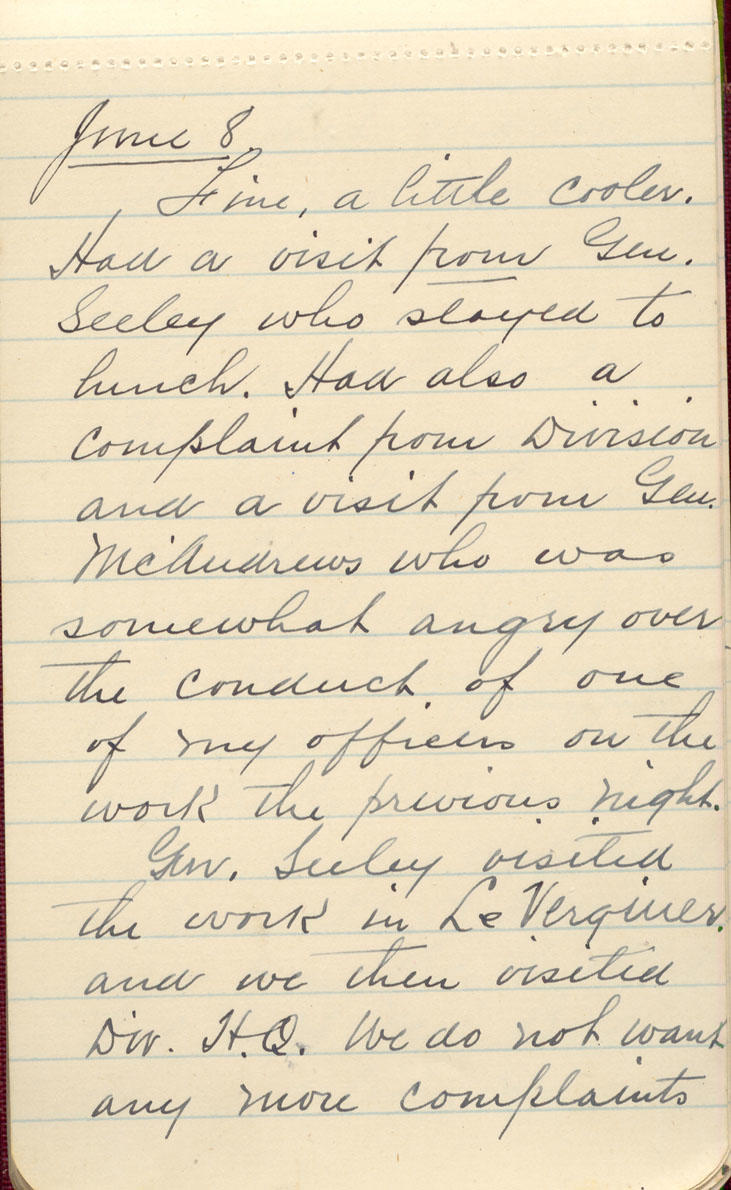 June 8.
Fine, a little cooler.
Had a visit from Gen.
Seeley who stayed to
lunch. Had also a
complaint from Division
and a visit from Gen.
McAndrews who was
somewhat angry over
the conduct of one
of my officers on the
work the previous night.
Gen. Seeley visited
the work in Le Verguier.
and we then visited
Div. H.Q. We do not want
any more complaints